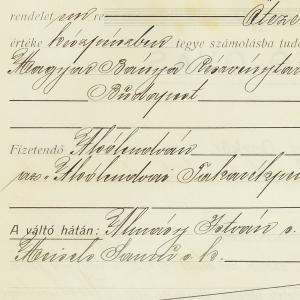 rendelet re Öteze
értéke készpénzben tegye számolásba tud
Magyar Bánya Részvényta
Budapest
Fizetendő Alsólendván
az Alsólendvai Takarékpén
A váltó hátán: Almásy István s.
Samu s. k.